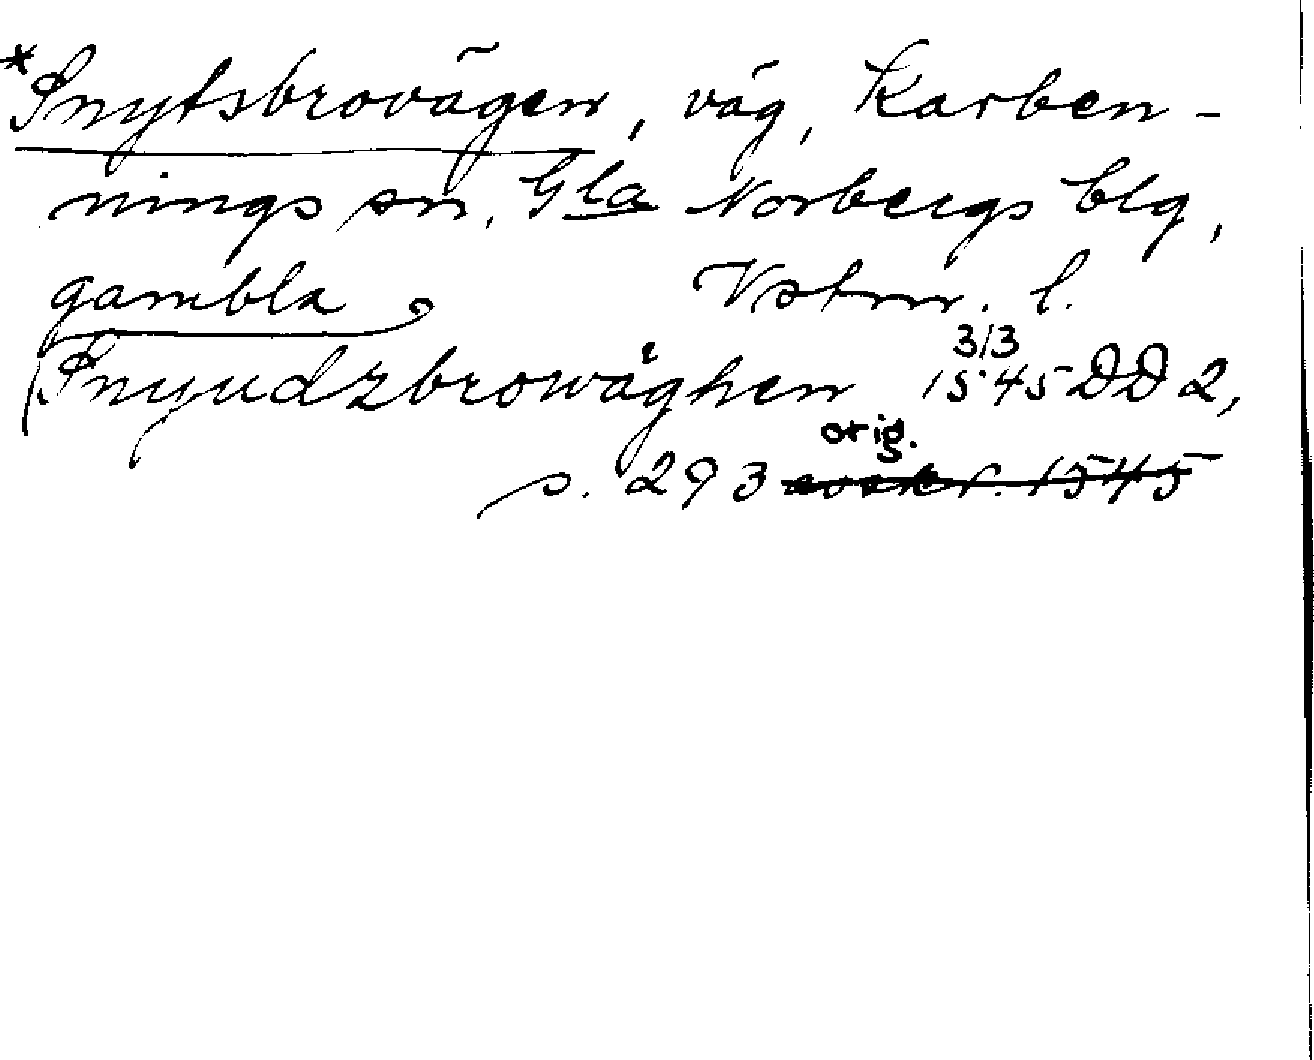 *Snytsbrovägen, väg, Karben-
nings sn, Gla Norbergs blg,
gambla Vstm. l.
Snyudzbrowåghen 3/3 1545 DD 2,
s. 293 orig.